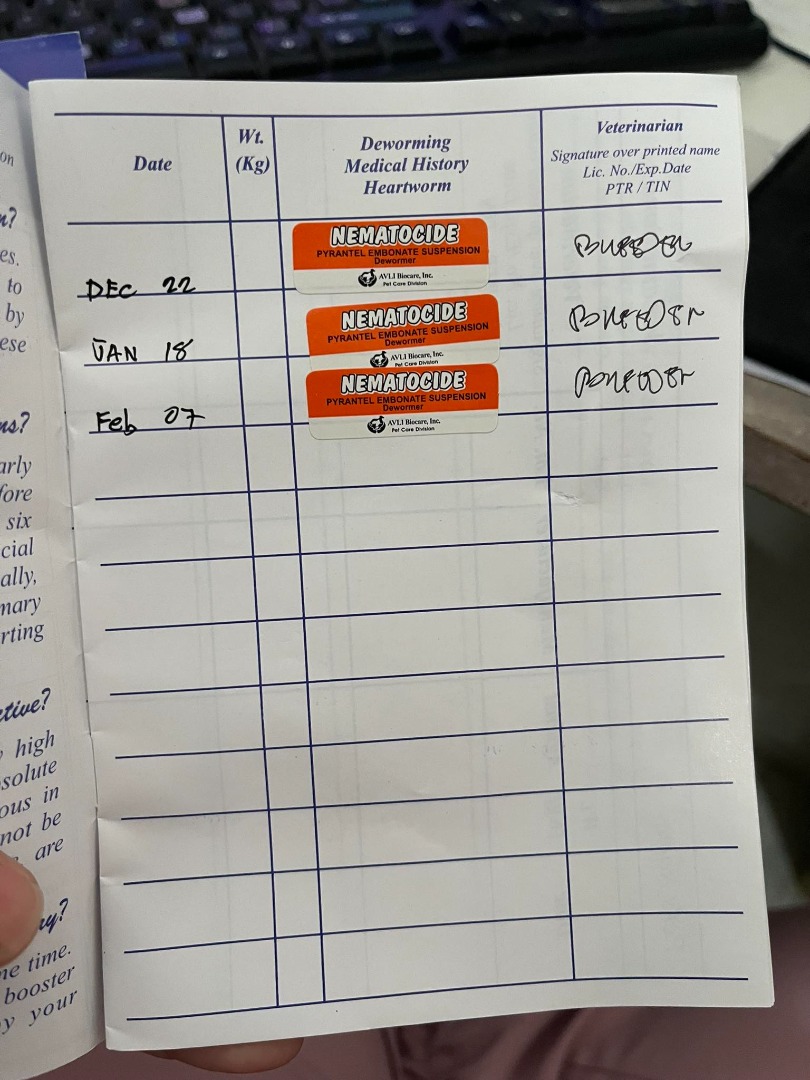 on
n?
es.
to
by
ese
ns?
arly
fore
six
cial
ally,
mary
rting
ctive?
high
solute
ous in
not be
are
ay?
ne time.
booster
y your
Date
Wt.
(Kg)
Deworming
Medical History
Heartworm
Veterinarian
Signature over printed name
Lic. No./Exp.Date
PTR / TIN
DEC 22
NEMATOCIDE
PYRANTEL EMBONATE SUSPENSION
Dewormer
AVLI Biocare, Inc.
Pet Care Division
BREEDER
JAN 18
NEMATOCIDE
PYRANTEL EMBONATE SUSPENSION
Dewormer
AVLI Biocare, Inc.
Pet Care Division
BREEDER
Feb 07
NEMATOCIDE
PYRANTEL EMBONATE SUSPENSION
Dewormer
AVLI Biocare, Inc.
Pet Care Division
BREEDER